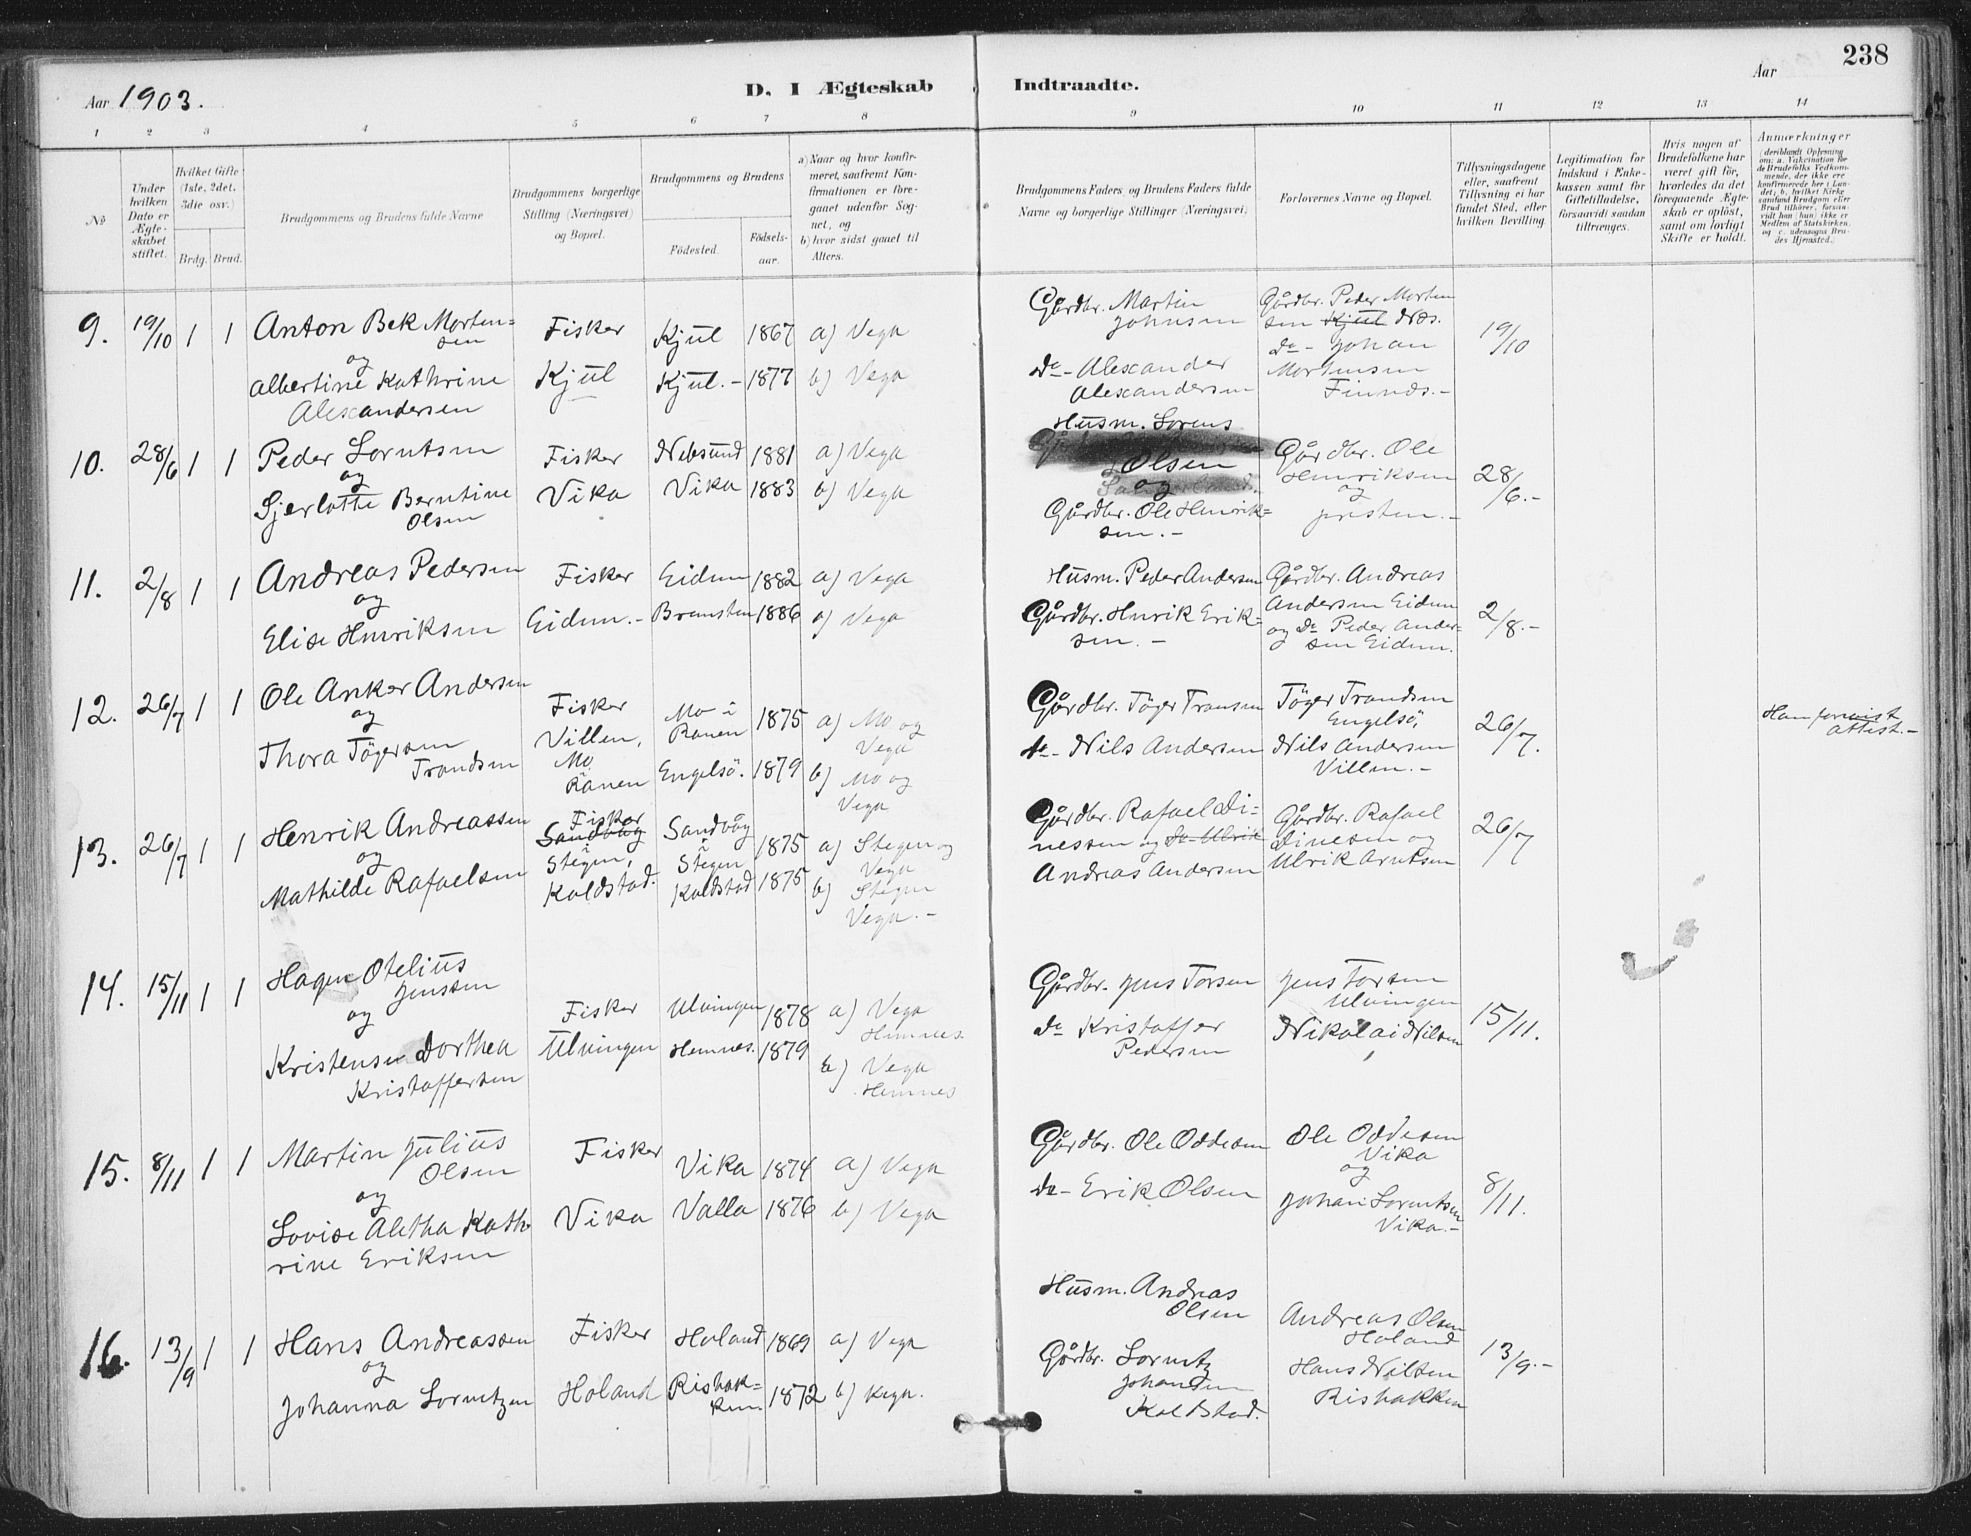 238
Aar 1903.
D. I Ægteskab Indtraadte.
Aar
1 2 3 4 5 6 7 8 9 10 11 12 13 14
№
Under hvilken Dato er Ægteskabet stiftet.
Hvilket Gifte (1ste, 2det, 3die osv.)
Brdg. Brud.
Brudgommens og Brudens fulde Navne
Brudgommens borgerlige Stilling (Næringsvei) og Bopæl.
Brudgommens og Brudens
Födested.
Födsels-aar.
a) Naar og hvor konfirmeret, saafremt Konfirmationen er foregaaet udenfor Sognet, og
b) hvor sidst gaaet til Alters.
Brudgommens Faders og Brudens Faders fulde Navne og borgerlige Stillinger (Næringsvei)
Forlovernes Navne og Bopæl.
Tillysningsdagene eller, saafremt Tillysning ei har fundet Sted, efter hvilken Bevilling
Legitimation for Indskud i Enkekassen samt for Giftetilladelse, forsaavidt saadan tiltrænges.
Hvis nogen af Brudefolkene har været gift för, hvorledes da det foregaaende Ægteskab er oplöst, samt om lovligt Skifte er holdt.
Anmærkninger
(deriblandt Oplysning om: a. Vakcination för de Brudefolks Vedkommende, der ikke ere konfirmerede her i Landet; b. hvilket Kirkesamfund Brudgom eller Brud tilhörer, forsaavidt han (hun) ikke er Medlem af Statskirken, og c. udensogns Brudes Hjemsted.)
9. 19/10 1 1 Anton Bek Morten=
sen
og
Albertine Kathrine
Alexandersen
Fisker
Kjul
Kjul 1867
Kjul. - 1877
a) Vega
b) Vega
Gårdbr. Martin
Johnsen
Do - Alexander
Alexandersen
Gårdbr. Peder Morten
sen Kjul Nes.
Do - Johan
Mortensen
Finnes. -
19/10
10. 28/6 1 1 Peder Lorntsen
og
Sjerlotte Berntine
Olsen
Fisker
Vika
Nebsund 1881
Vika 1883
a) Vega
b) Vega
Husm. Lorens
Olsen
og
Gårdbr. Ole Henrik=
sen. -
Gårdbr. Ole
Henriksen
og
presten. -
28/6. -
11. 2/8 1 1 Andreas Pedersen
og
Elise Henriksen
Fisker
Eidem. -
Eidem 1882
Bremsten 1886
a) Vega
b) Vega
Husm. Peder Andersen
Gårdbr. Henrik Erik=
sen. -
Gårdbr. Andreas
Andersen Eidem
og Do Peder Ander=
sen Eidem.
2/8. -
12. 26/7 1 1 Ole Anker Andersen
og
Thora Tögersen
Trondsen
Fisker
Villen,
Mo
Ranen
Mo i
Ranen 1875
Engelsö. 1879
a) Mo og
Vega
b) Mo og
Vega
Gårdbr. Töger Transen
do - Nils Andersen
Töger Trandsen
Engelsö,
Nils Andersen
Villen. -
26/7.
Han forevist
attest. -
13. 26/7 1 1 Henrik Andreassen
og
Mathilde Rafaelsen
Fisker
Sandvåg
Stegen,
Koldstad.
Sandvåg
i
Stegen 1875
Koldstad 1875
a) Stegen og
Vega
b) Stegen
Vega. -
Gårdbr. Rafael Di=
nessen og Do Ulrik
Andreas Andersen
Gårdbr. Rafael
Dinesen og
Ulrik Arntsen
26/7
14. 15/11 1 1 Hagen Otelius
Jenssen
og
Kristense Dorthea
Kristoffersen
Fisker
Ulvingen
Ulvingen 1878
Hemnes. 1879
a) Vega
Hemnes.
b) Vega
Hemnes
Gårdbr. Jens Torsen
Do Kristoffer
Pedersen
Jens Torsen
Ulvingen
Nikolai Nilsen
15/11.
15. 8/11 1 1 Martin Julius
Olsen
og
Lovise Aletha Kath
rine Eriksen
Fisker
Vika
Vika 1874
Valla 1876
a) Vega
b) Vega
Gårdbr. Ole Oddesen
Do - Erik Olsen
Ole Oddesen
Vika
og
Johan Lorentsen
Vika. -
8/11.
16. 13/9 1 1 Hans Andreassen
og
Johanna Lorentzen
Fisker
Holand
Holand 1869
Rishak=
ken 1872
a) Vega
b) Vega.
Husm. Andreas
Olsen
Gårdbr. Lorentz
Johansen
Koldstad.
Andreas Olsen
Holand
Hans Nilsen
Rishakken
13/9. -